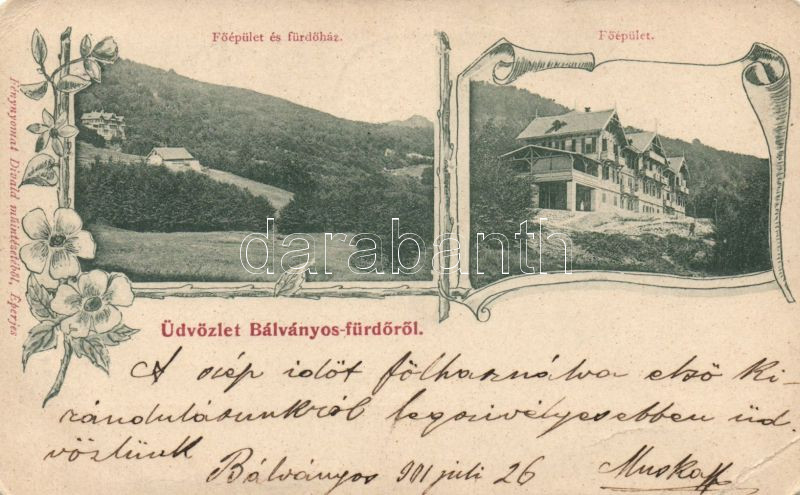 Főépület és fürdőház.
Főépület.
Fénynyomat Divald műintézetéből, Eperjes
darabanth.com
Üdvözlet Bálványos-fürdőről.
A szép időt fölhasználva első ki-
rándulásunkról legszivélyesebben üd-
vözlünk
Bálványos 901 juli 26